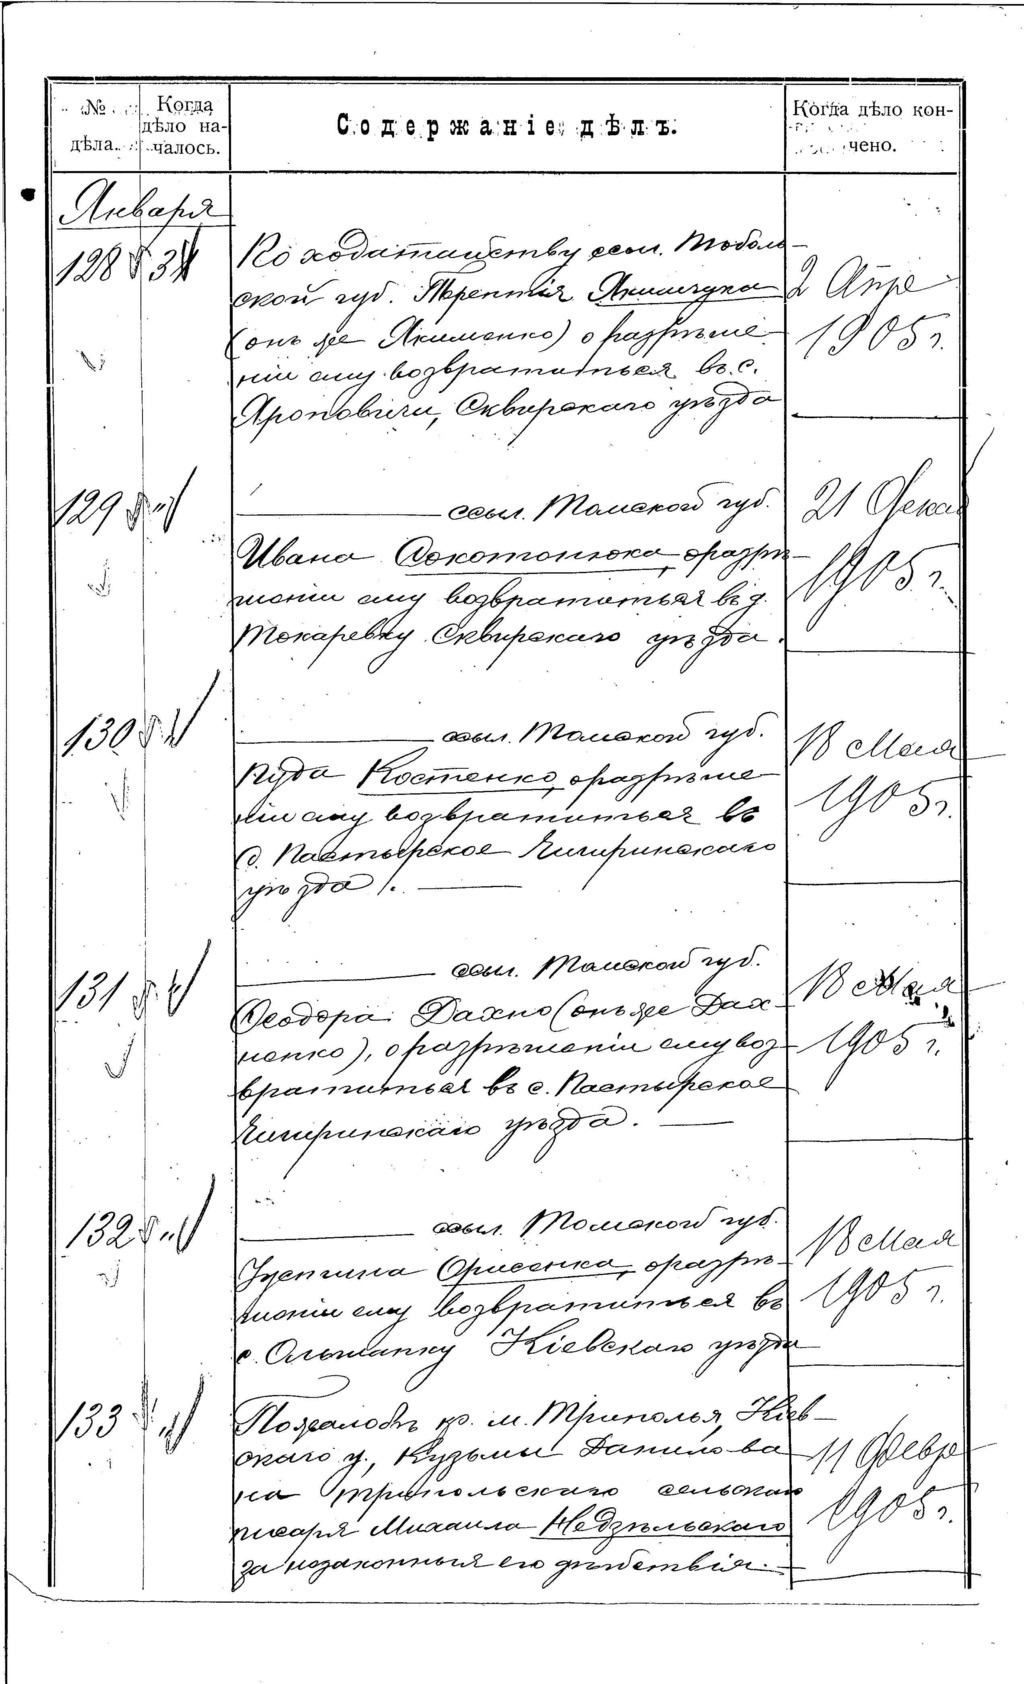 № дѣла.
Когда дѣло на-
чалось.
Содержаніе дѣлъ.
Когда дѣло кон-
чено.
Января
128 3
По ходатайству ссыл. Тоболь-
ской губ. Терентія Якимчука
(онъ же Якименко) о разрѣше-
ніи ему возвратиться въ с.
Яроповичи, Сквирскаго уѣзда
2 Апре
1905 г.
129 "
ссыл. Томской губ.
Ивана Сокотонюка, о разрѣ-
шеніи ему возвратиться въ д.
Токаревку Сквирскаго уѣзда.
21 Дека
1905 г.
130
ссыл. Томской губ.
Костенко, о разрѣше-
ніи ему возвратиться въ
с. Пастырское Чигиринскаго
уѣзда.
18 Мая
1905 г.
131
ссыл. Томской губ.
Ѳеодора Дахно (онъ же Дах-
ненко), о разрѣшеніи ему воз-
вратиться въ с. Пастырское
Чигиринскаго уѣзда.
18 Мая
1905 г.
132 "
ссыл. Томской губ.
Іустина Орисенка, о разрѣ-
шеніи ему возвратиться въ
с. Ольшанку Кіевскаго уѣзда
18 Мая
1905 г.
133 "
По жалобѣ кр. м. Триполья, Кіев-
скаго у., Кузьмы Данилова
на трипольскаго сельскаго
писаря Михаила Недзѣльскаго
за незаконныя его дѣйствія.
11 Февр
1905 г.